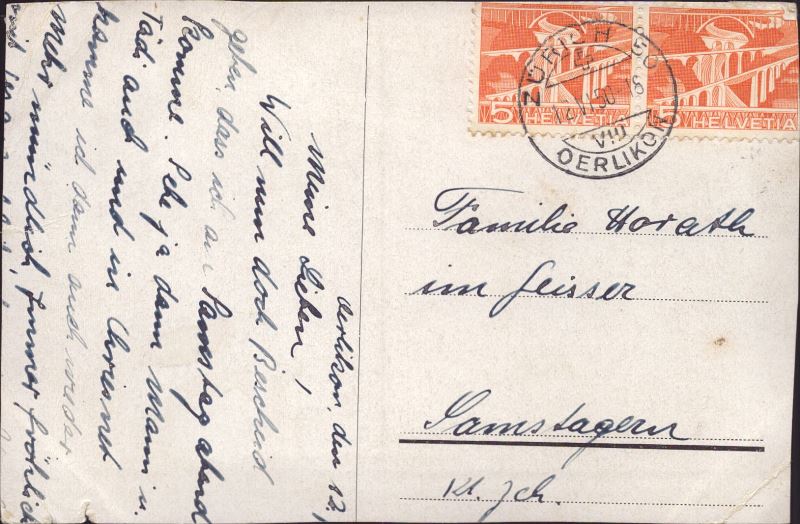 Oerlikon, den 12.
Meine Lieben!
Will nun doch Bescheid
geben, dass ich am Samstag abend
komme. Seh ja dann Mann u.
Tädi auch und in
komme ich dann auch wieder
Mehr mündlich, Immer fröhlich
5 HELVETIA
5 HELVETIA
ZÜRICH 50
12.VI.50.-18
VIII
OERLIKON
Familie Horath
im Geisser
Samstagern
Kt. Zch.